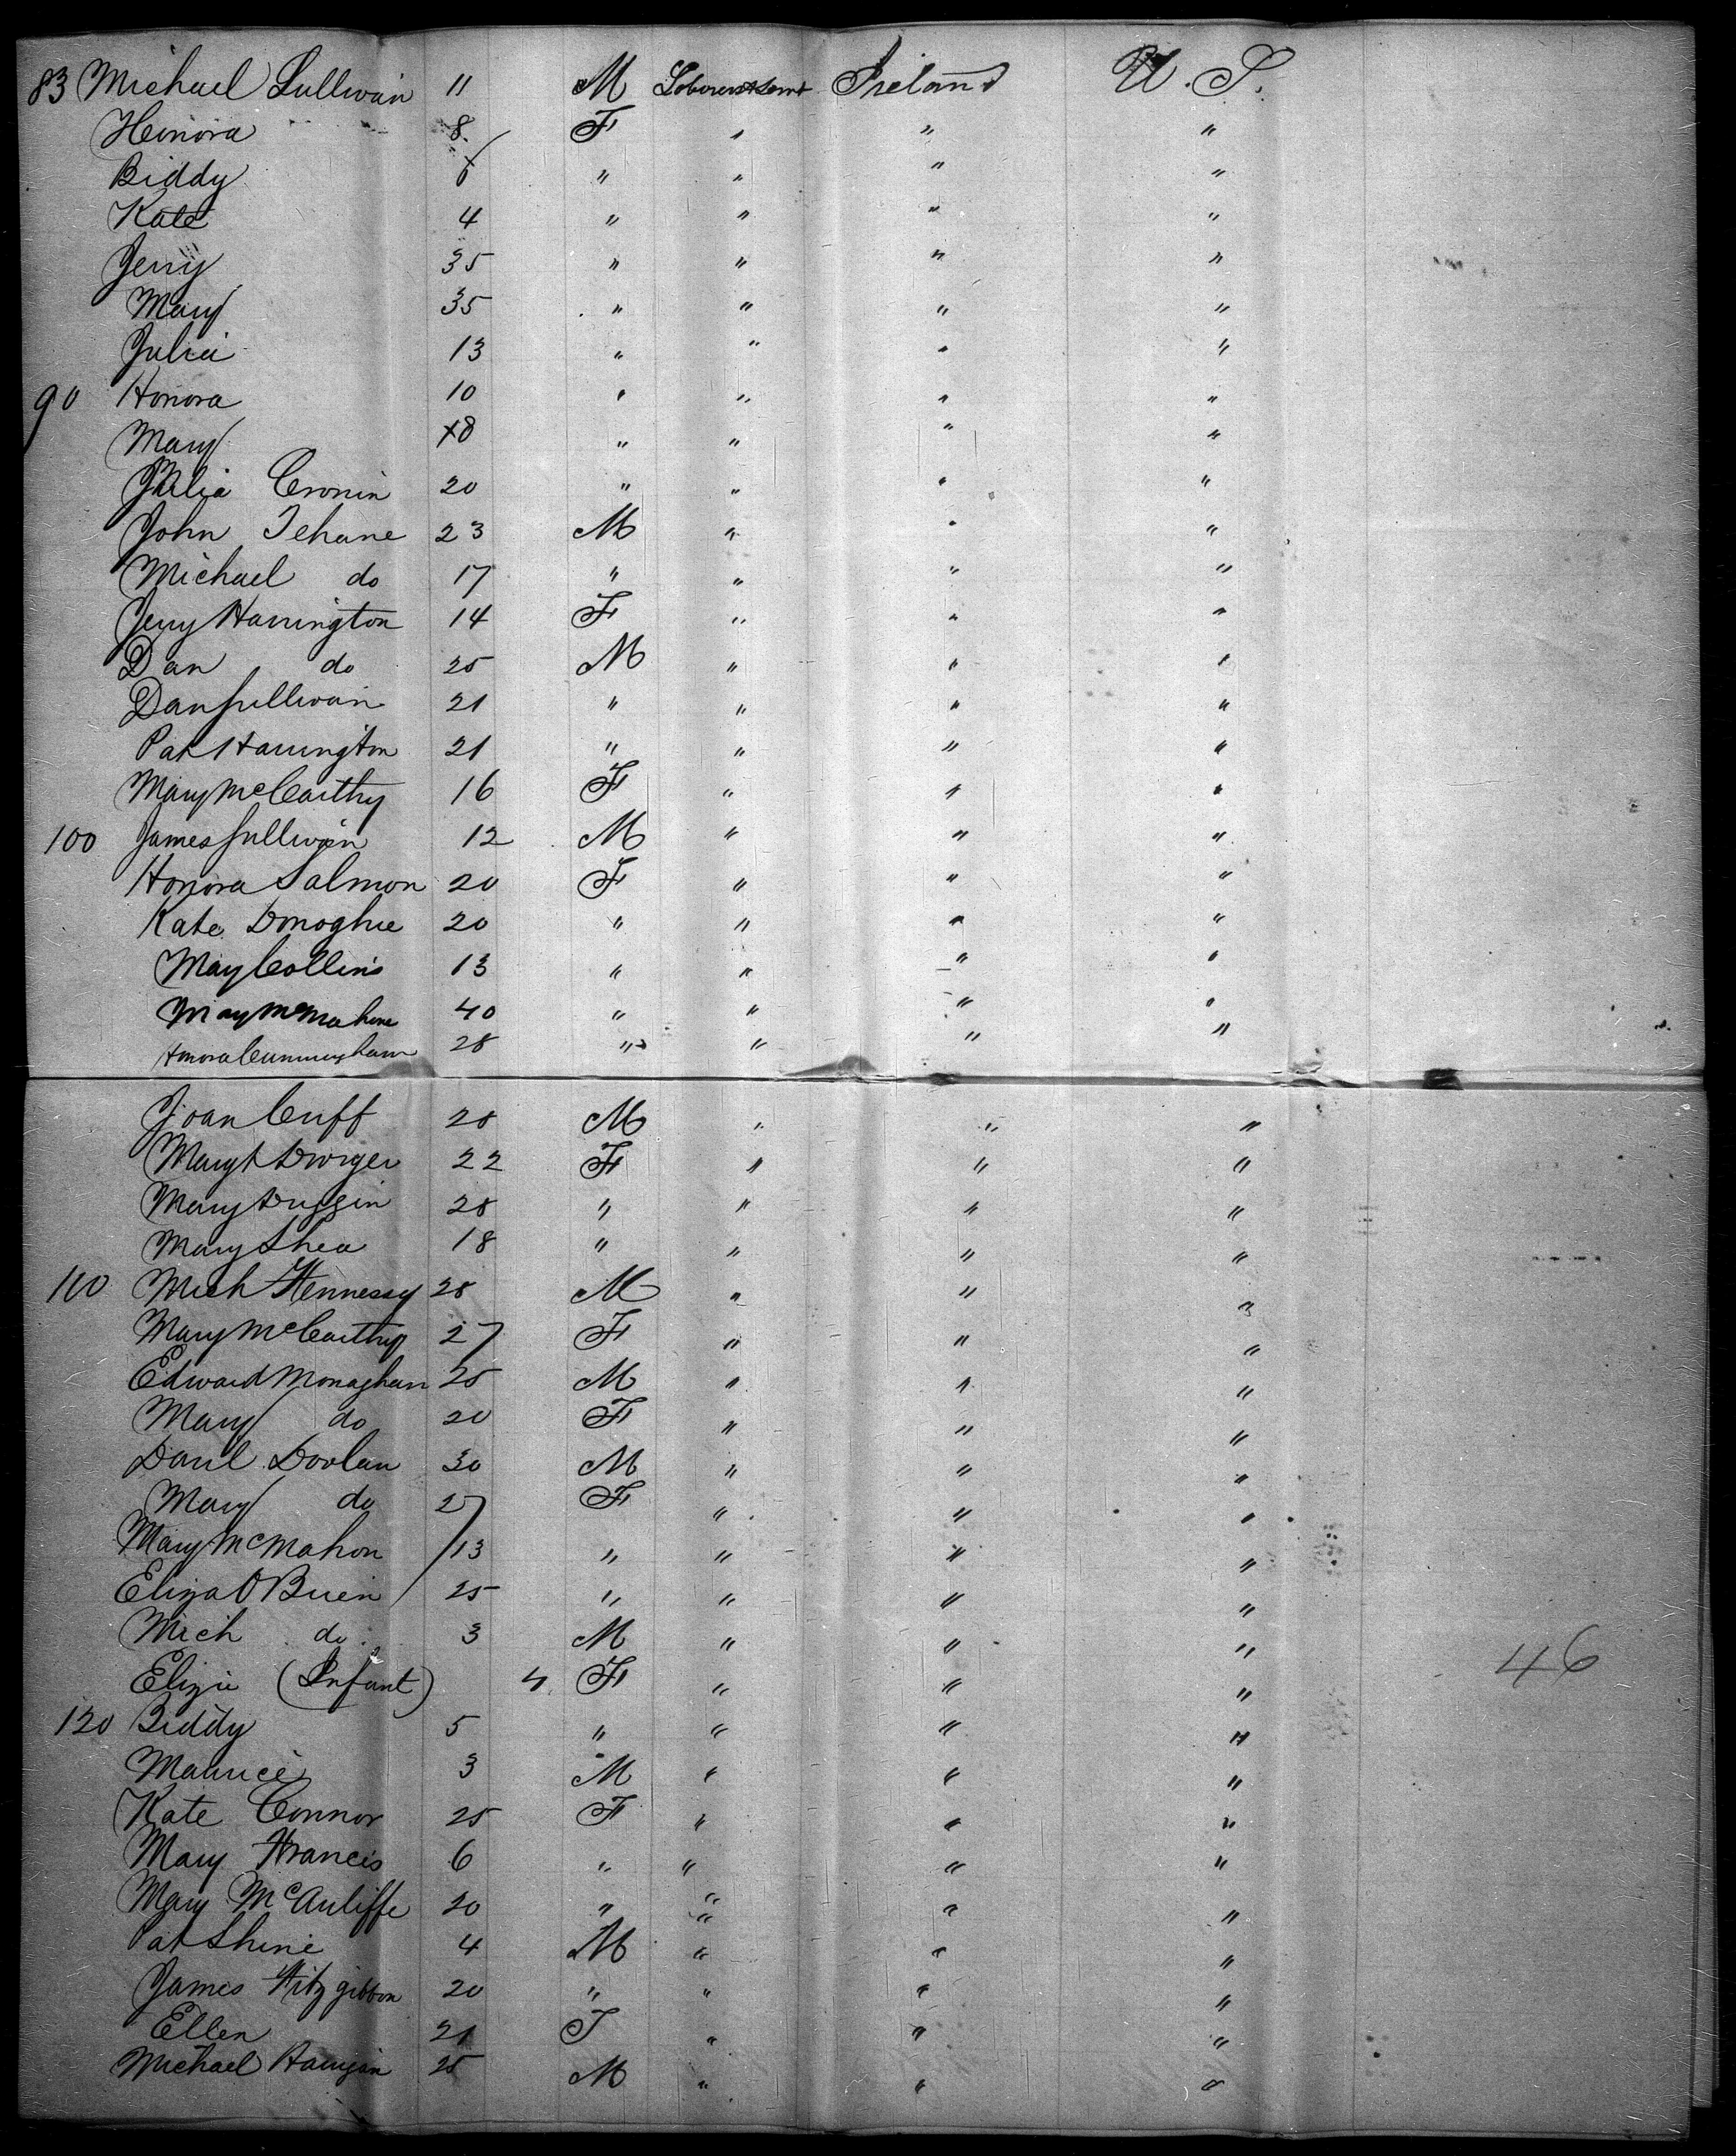 83 Michael Sullivan 11 M Ireland U. S.
Honora 8 F " " "
Biddy 6 " " " "
Kate 4 " " " "
Jerry 35 " " " "
Mary 35 " " " "
Julia 13 " " " "
90 Honora 10 " " " "
Mary 8 " " " "
Julia Cronin 20 " " " "
John Tehane 23 M " " "
Michael do 17 " " " "
Jerry Harrington 14 F " " "
Dan do 25 M " " "
Dan Sullivan 21 " " " "
Pat Harrington 21 " " " "
Mary McCarthy 16 F " " "
100 James Sullivan 12 M " " "
Honora Salmon 20 F " " "
Kate Donoghue 20 " " " "
Mary Collins 13 " " " "
Mary McMahon 40 " " " "
Honora Cunningham 28 " " " "
Joan Cuff 28 M " " "
Mary Dwyer 22 F " " "
Mary Duggin 28 " " " "
Mary Shea 18 " " " "
110 Mich Hennessy 28 M " " "
Mary McCarthy 27 F " " "
Edward Monaghan 25 M " " "
Mary do 20 F " " "
Danl Doolan 30 M " " "
Mary do 27 F " " "
Mary McMahon 13 " " " "
Eliza O Brien 25 " " " "
Mich do 3 M " " "
Eliza (Infant) 4 F " " "
46
120 Biddy 5 " " " "
Maurice 3 M " " "
Kate Connor 25 F " " "
Mary Francis 6 " " " "
Mary McAuliffe 20 " " " "
Pat Shine 4 M " " "
James Fitzgibbon 20 " " " "
Ellen 21 F " " "
Michael 25 M " " "